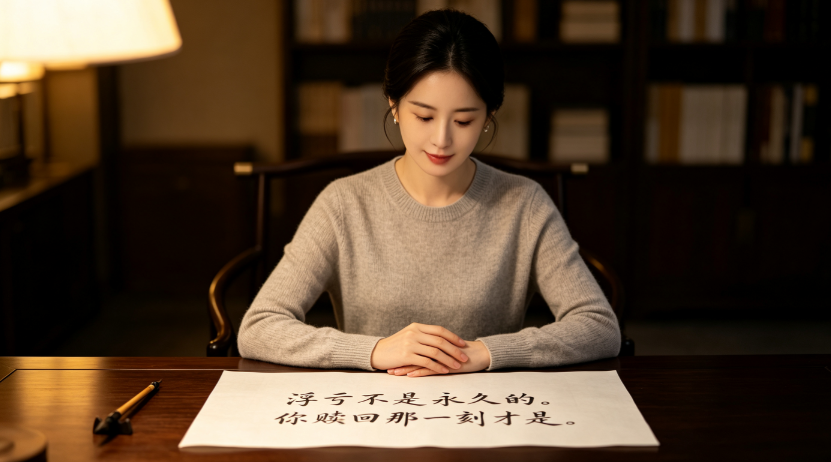 浮亏不是永久的。
你赎回那一刻才是。